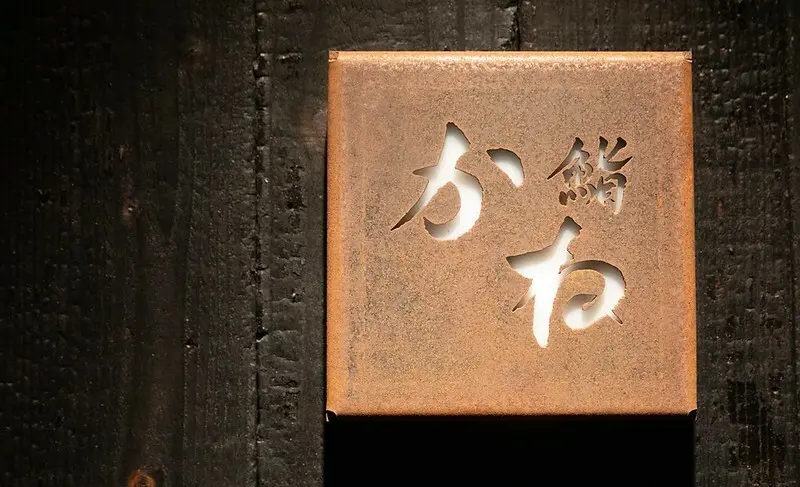 鮨
かね